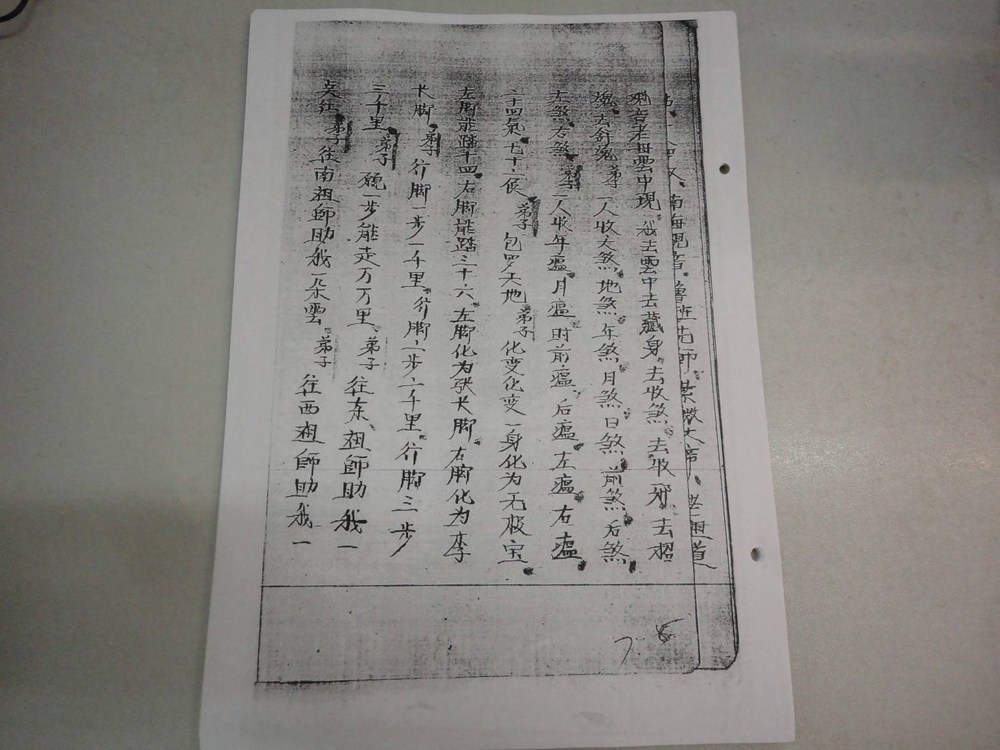 南海現音、魯班先師、紫微大帝、
老母雲中現、我去雲中去藏身、去收煞、去收邪、去招
魂、弟子一人收天煞、地煞、年煞、月煞、日煞、前煞、后煞、
左煞、右煞、弟子一人收年瘟、月瘟、时前瘟、后瘟、左瘟、右瘟、
二十四氣、七十二侯、弟子包罗天地、弟子化变化变一身化为无极宝、
左脚能踏十四、右脚能踏三十六、左脚化为张长脚、右脚化为李
长脚、弟子行脚一步一千里、行脚二步二千里、行脚三步
三千里、弟子一步能走万万里、弟子往东、祖師助我一
弟子往南祖師助我一朵雲、弟子往西祖師助我一
7 8